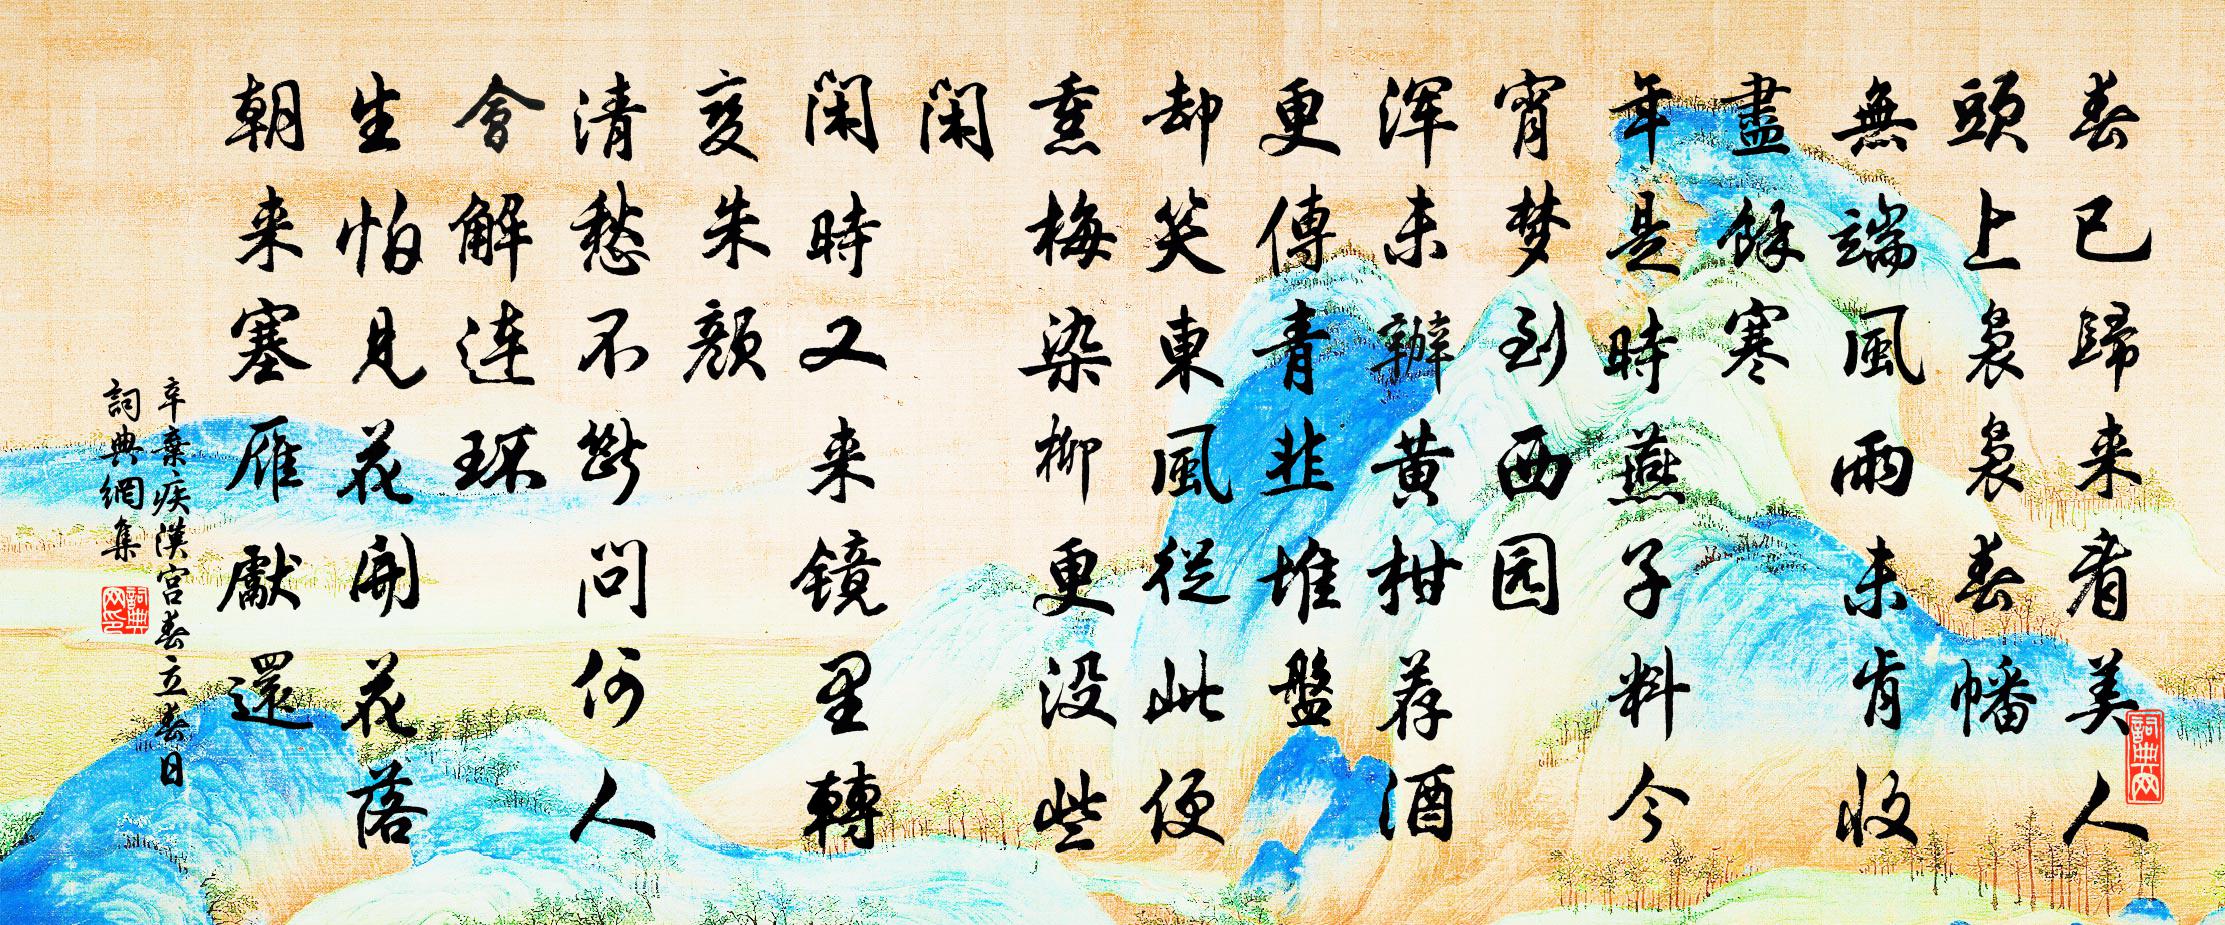 春已歸来看美人
頭上裊裊春幡
無端風雨未肯收
盡餘寒
年是時燕子料今
宵梦到西园
浑未辦黄柑荐酒
更傳青韭堆盤
却笑東風從此便
熏梅染柳更没些
闲
闲時又来镜里轉
变朱颜
清愁不断問何人
會解連环
生怕見花開花落
朝来塞雁獻還
辛棄疾漢宮春立春日
詞典網集
詞典网印
詞典网